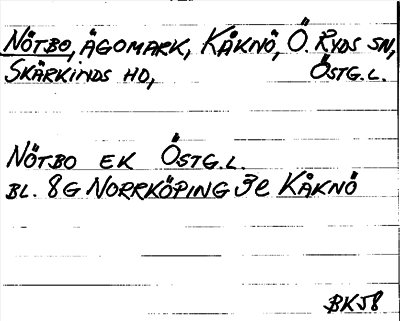 NÖTBO, ÄGOMARK, KÅKNÖ, Ö. RYDS SN,
SKÄRKINDS HD, ÖSTG.L.
NÖTBO EK ÖSTG.L.
BL. 8G NORRKÖPING 3e KÅKNÖ
BKJ8